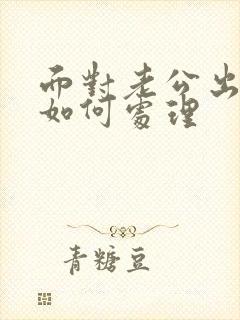 面對老公出
如何處理
青糖豆